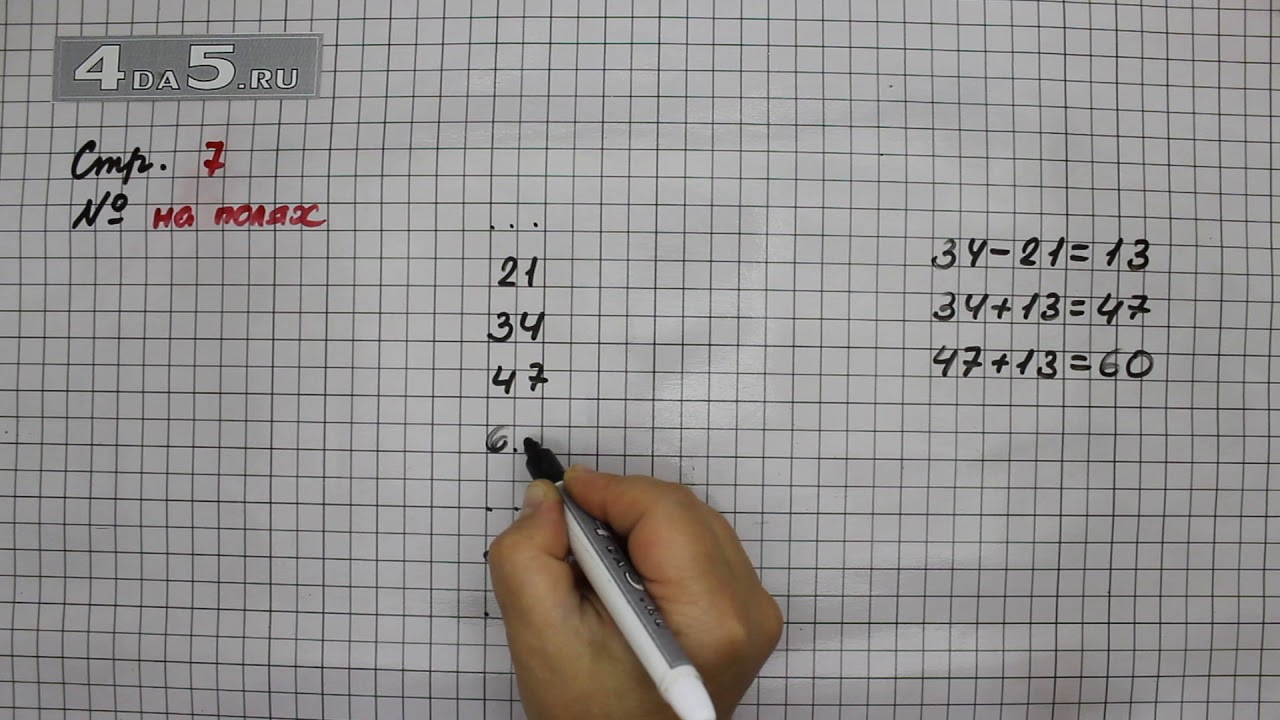 4DA5.RU
Стр. 7
№ на полях
...
21
34
47
6.
34-21=13
34+13=47
47+13=60